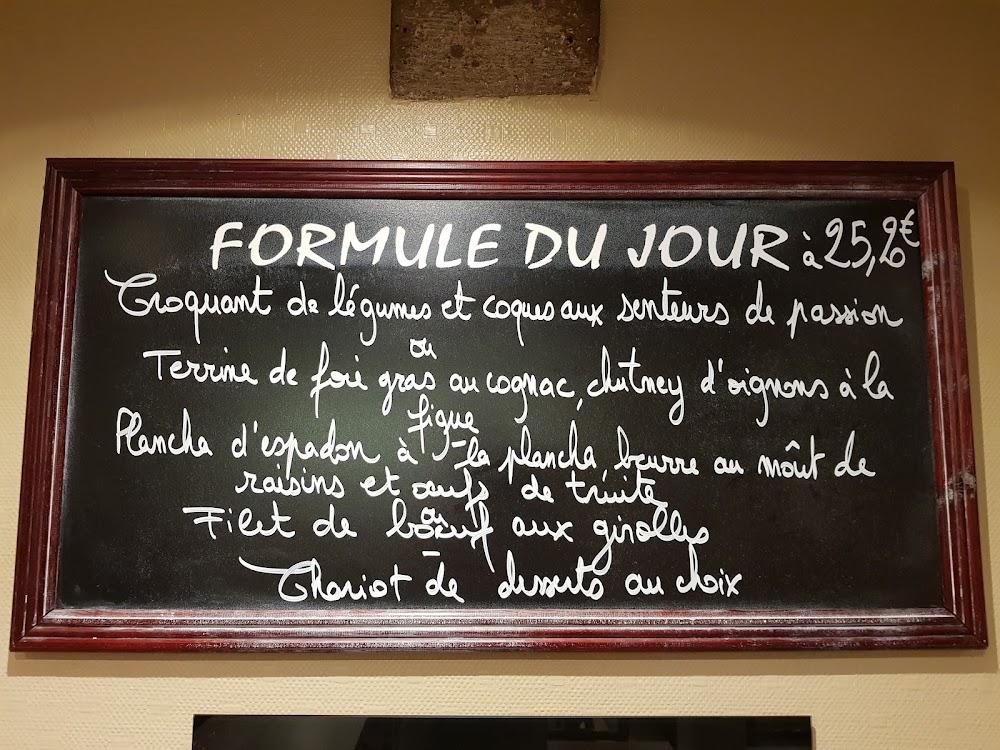 FORMULE DU JOUR à 25,20€
Croquant de légumes et coques aux senteurs de passion
ou
Terrine de foie gras au cognac, chutney d'oignons à la
figue
Plancha d'espadon à la plancha, beurre au moût de
raisins et œufs de truite
ou
Filet de bœuf aux girolles
Chariot de desserts au choix